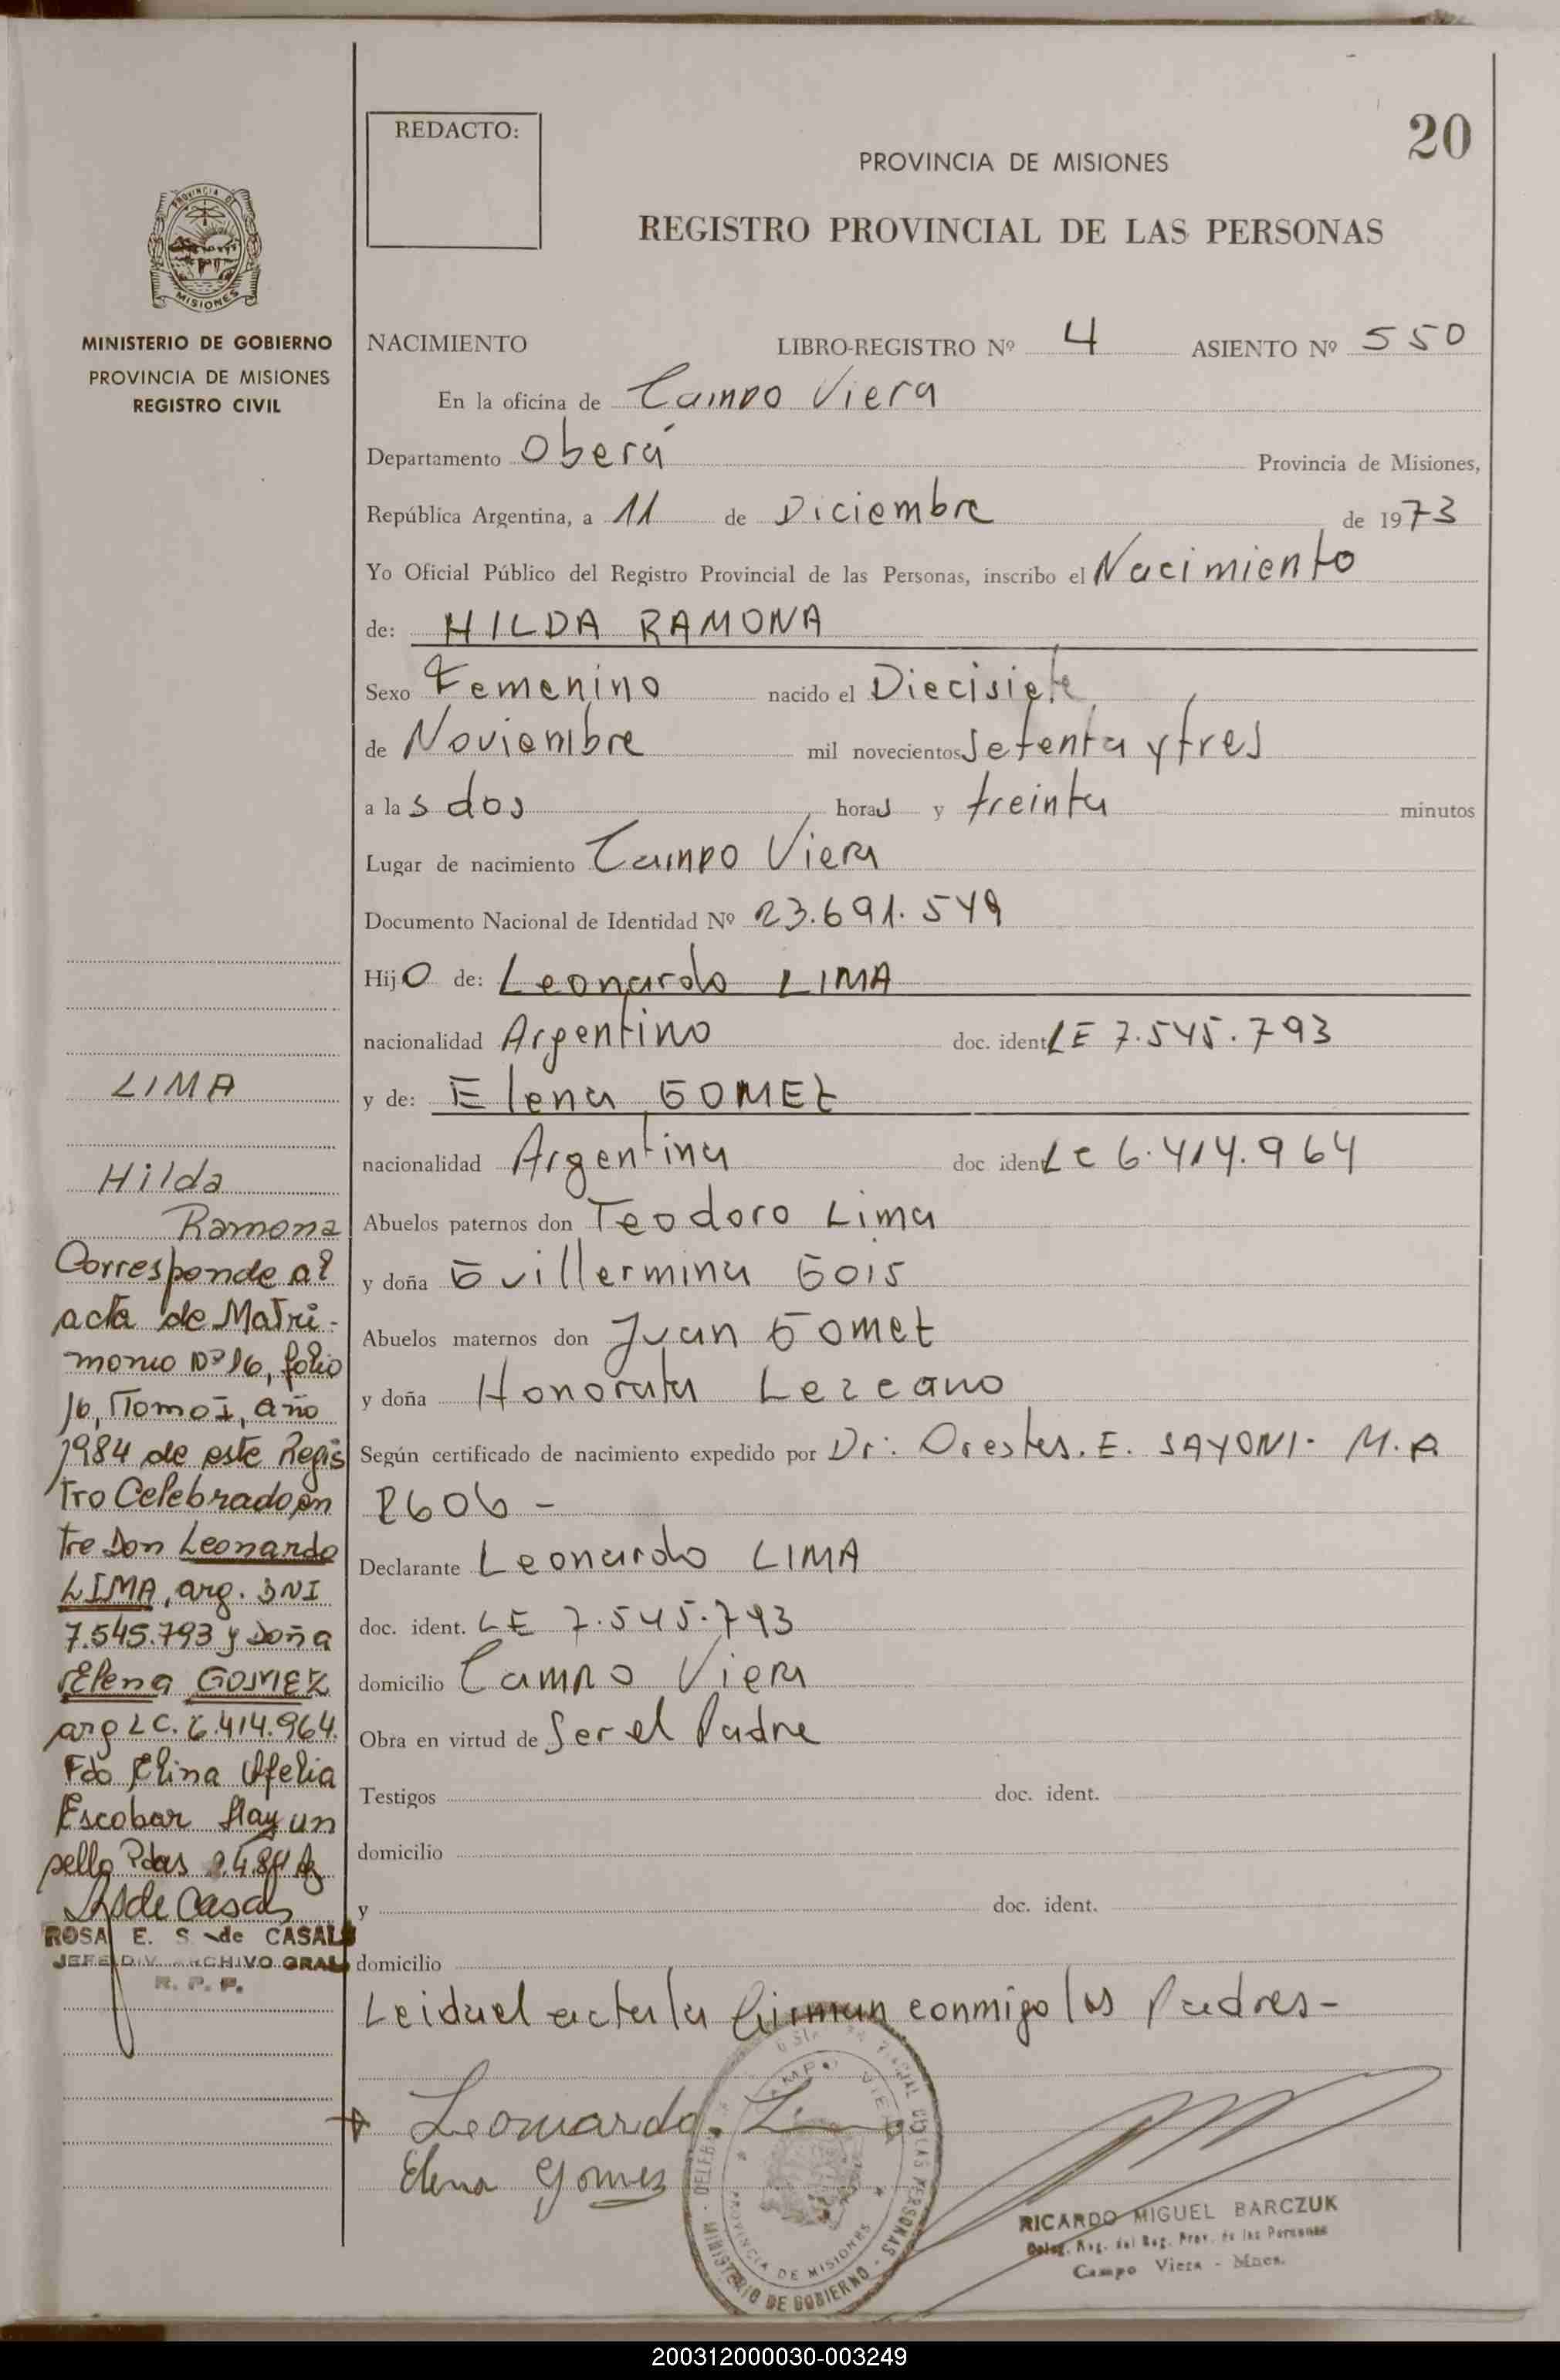 REDACTO:
20
PROVINCIA DE MISIONES
REGISTRO PROVINCIAL DE LAS PERSONAS
PROVINCIA DE
MISIONES
MINISTERIO DE GOBIERNO
PROVINCIA DE MISIONES
REGISTRO CIVIL
NACIMIENTO LIBRO-REGISTRO Nº 4 ASIENTO Nº 550
En la oficina de Campo Viera
Departamento Oberá Provincia de Misiones,
República Argentina, a 11 de Diciembre de 1973
Yo Oficial Público del Registro Provincial de las Personas, inscribo el Nacimiento
de: HILDA RAMONA
Sexo Femenino nacido el Diecisiete
de Noviembre mil novecientos setenta y tres
a las dos horas y treinta minutos
Lugar de nacimiento Campo Viera
Documento Nacional de Identidad Nº 23.691.549
Hijo de: Leonardo LIMA
nacionalidad Argentino doc. ident LE 7.545.793
y de: Elena GOMEZ
nacionalidad Argentina doc ident LC 6.414.964
Abuelos paternos don Teodoro Lima
y doña Guillermina Gois
Abuelos maternos don Juan Gomez
y doña Honorata Lezcano
Según certificado de nacimiento expedido por Dr. Orestes. E. SAYONI. M.P.
2606 -
Declarante Leonardo LIMA
doc. ident. LE 7.545.793
domicilio Campo Viera
Obra en virtud de Ser el Padre
Testigos doc. ident.
domicilio
y doc. ident.
domicilio
Leida el acta la firman conmigo los Padres-
Leonardo Lima
Elena Gomez
MINISTERIO DE GOBIERNO
CAMPO VIERA
PROVINCIA DE MISIONES
RICARDO MIGUEL BARCZUK
Deleg. Reg. del Reg. Prov. de las Personas
Campo Viera - Mnes.
LIMA
Hilda
Ramona
Corresponde al
acta de Matri-
monio Nº 16, folio
16, Tomo I, año
1984 de este Regis
tro Celebrado en
tre Don Leonardo
LIMA, arg. DNI
7.545.793 y Doña
Elena GOMEZ
arg LC. 6.414.964.
Fdo Elina Ofelia
Escobar Hay un
sello Pdas
ROSA E. S. de CASALS
JEFE DIV. ARCHIVO GRAL
R. P. P.
200312000030-003249